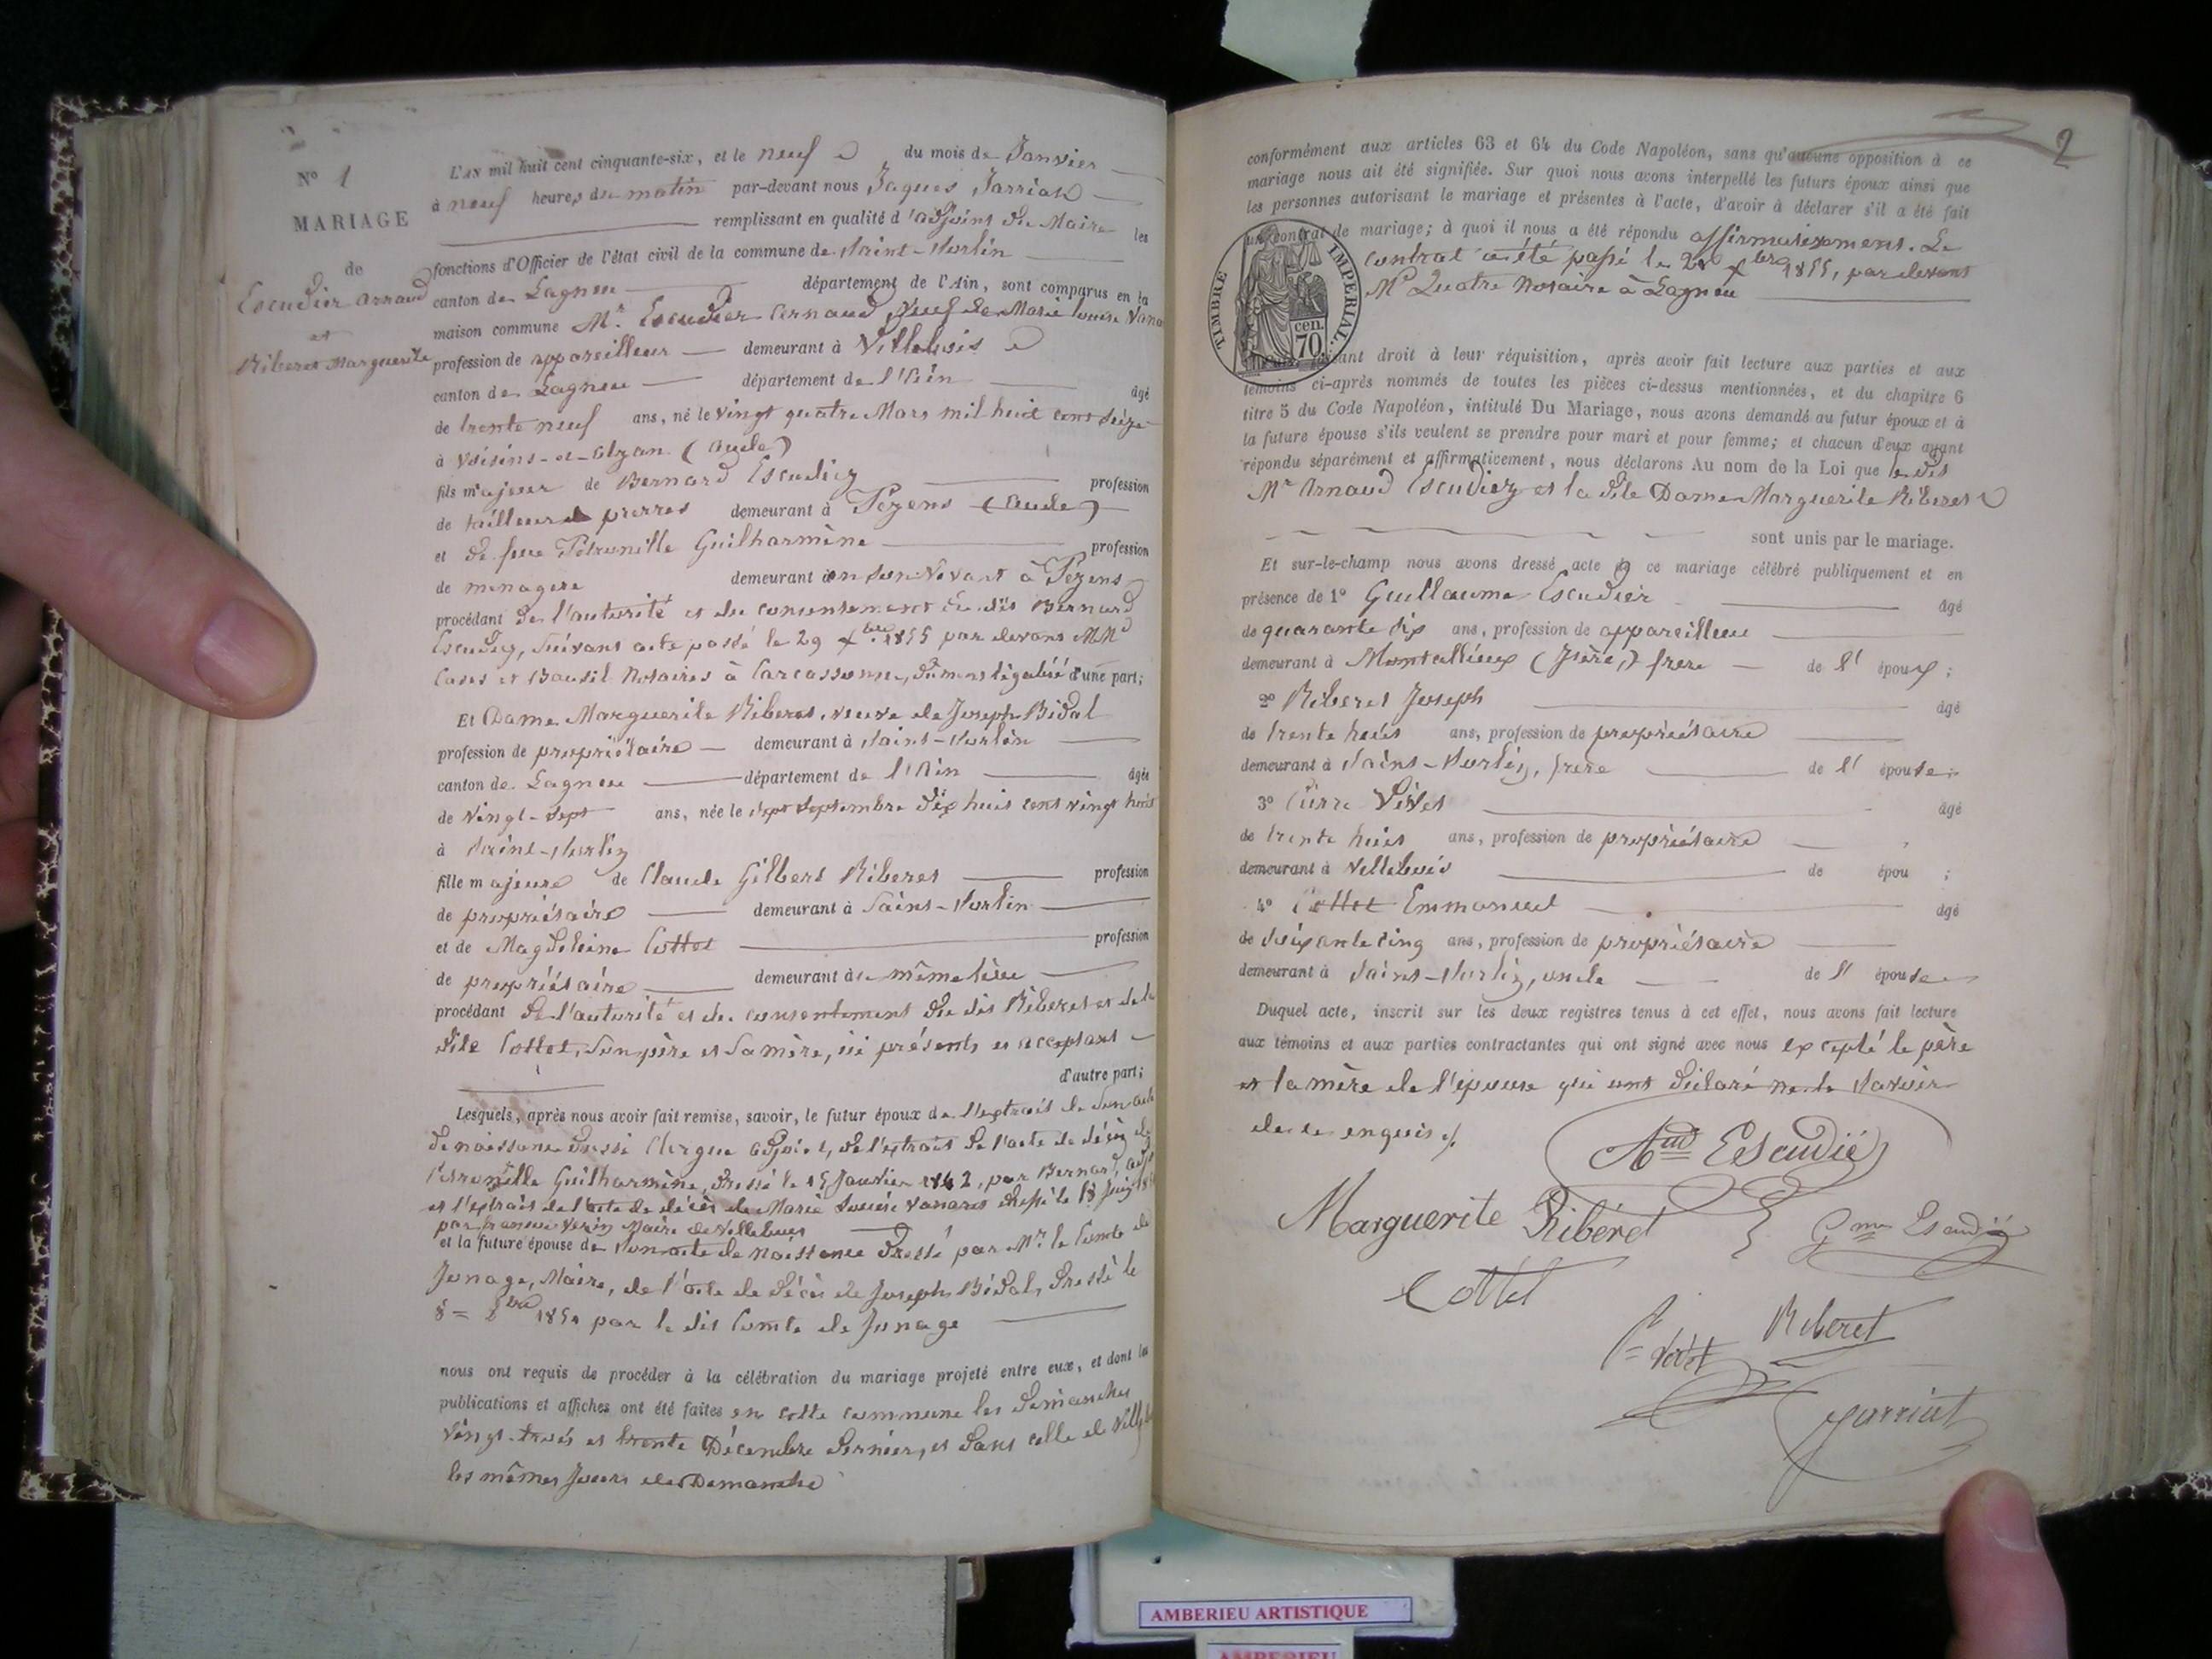 N° 1
MARIAGE
de
Escudier Arnaud
et
Riberet Marguerite
L'AN mil huit cent cinquante-six, et le neuf du mois de Janvier
à neuf heures du matin par-devant nous Jaques Jarriat
remplissant en qualité d'adjoint du Maire les
fonctions d'Officier de l'état civil de la commune de Saint-Sorlin
canton de Lagneu département de l'Ain, sont comparus en la
maison commune Mr. Escudier Arnaud, veuf de Marie Louise
profession de appareilleur demeurant à Villebois
canton de Lagneu département de l'Ain âgé
de trente neuf ans, né le vingt quatre Mars mil huit cent seize
à Voisins-et-Alzan (Aude)
fils majeur de Bernard Escudier profession
de tailleur de pierres demeurant à Pezens (Aude)
et de feue Pétronille Guilharmène profession
de menagere demeurant en son vivant à Pezens
procédant de l'autorité et du consentement du dit Bernard
Escudier, suivant acte passé le 29 Xbre 1855 par devant
Cases et Bausil Notaires à Carcassonne, dument légalisé d'une part;
Et Dame Marguerite Riberet, veuve de Joseph Bidal
profession de propriétaire demeurant à Saint-Sorlin
canton de Lagneu département de l'Ain âgée
de vingt-sept ans, née le sept septembre dix huit cent vingt huit
à Saint-Sorlin
fille majeure de Claude Gilbert Riberet profession
de propriétaire demeurant à Saint-Sorlin
et de Magdeleine Cottet profession
de propriétaire demeurant au même lieu
procédant de l'autorité et du consentement du dit Riberet et de la
dite Cottet, son père et sa mère, ici présents et acceptant
d'autre part;
Lesquels, après nous avoir fait remise, savoir, le futur époux de l'extrait de son acte
de naissance dressé Clergue adjoint, de l'extrait de l'acte de décès de
Petronille Guilharmène, dressé le 15 Janvier 1842, par Bernard, adjt
et l'extrait de l'acte de décès de Marie Louise Vanaret dressé le 18 Juin
par Verin Maire de Villebois
et la future épouse de son acte de naissance dressé par Mr. le Comte de
Jonage, Maire, de l'acte de décès de Joseph Bidal, dressé le
8 = par le dit Comte de Jonage
nous ont requis de procéder à la célébration du mariage projeté entre eux, et dont les
publications et affiches ont été faites en cette commune les dimanches
vingt-trois et trente Décembre dernier, et dans celle de
les mêmes jours de Dimanche
2
conformément aux articles 63 et 64 du Code Napoléon, sans qu'aucune opposition à ce
mariage nous ait été signifiée. Sur quoi nous avons interpellé les futurs époux ainsi que
les personnes autorisant le mariage et présentes à l'acte, d'avoir à déclarer s'il a été fait
un contrat de mariage; à quoi il nous a été répondu affirmativement. Le
contrat a été passé le Xbre 1855, par devant
Me Quatre Notaire à Lagneu
TIMBRE IMPERIAL
70 cen.
droit à leur réquisition, après avoir fait lecture aux parties et aux
témoins ci-après nommés de toutes les pièces ci-dessus mentionnées, et du chapitre 6
titre 5 du Code Napoléon, intitulé Du Mariage, nous avons demandé au futur époux et à
la future épouse s'ils veulent se prendre pour mari et pour femme; et chacun d'eux ayant
répondu séparément et affirmativement, nous déclarons Au nom de la Loi que le dit
Mr Arnaud Escudier et la dite Dame Marguerite Riberet
sont unis par le mariage.
Et sur-le-champ nous avons dressé acte de ce mariage célébré publiquement et en
présence de 1° Guillaume Escudier âgé
de quarante six ans, profession de appareilleur
demeurant à Montallieux (Isère,) frere de l'époux;
2° Riberet Joseph âgé
de trente huit ans, profession de propriétaire
demeurant à Saint-Sorlin, frère de l'épouse;
3° Pierre Vivet âgé
de trente huit ans, profession de propriétaire
demeurant à Villebois de épou ;
4° Cottet Emmanuel âgé
de soixante cinq ans, profession de propriétaire
demeurant à Saint-Sorlin, oncle de l'épouse
Duquel acte, inscrit sur les deux registres tenus à cet effet, nous avons fait lecture
aux témoins et aux parties contractantes qui ont signé avec nous excepté le père
et la mère de l'épouse qui ont déclaré ne le savoir
de ce enquis
Aud Escudié
Marguerite Ribéret Gme Escudié
Cottet
Riberet
P= Vivet
Jarriat
AMBERIEU ARTISTIQUE
AMBERIEU